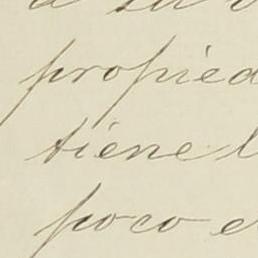 a su
propied
tiene l
poco e